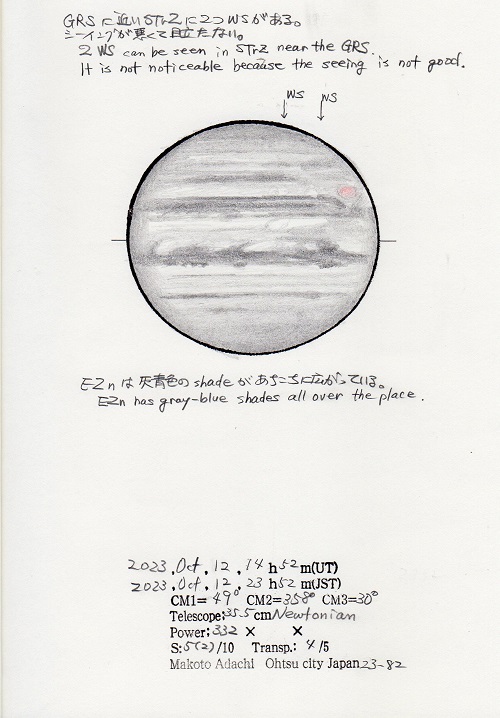 GRSに近いSTrZに2つWSがある。
シーイングが悪くて目立たない。
2 WS can be seen in STrZ near the GRS.
It is not noticeable because the seeing is not good.
WS WS
EZnは灰青色のshadeがあちこちに広がっている。
EZn has gray-blue shades all over the place.
2023,Oct,12,14h52m(UT)
2023,Oct,12,23h52m(JST)
CM1=49° CM2=358° CM3=30°
Telescope:35.5cmNewtonian
Power:332 × ×
S:5(2)/10 Transp.: 4/5
Makoto Adachi Ohtsu city Japan 23-82